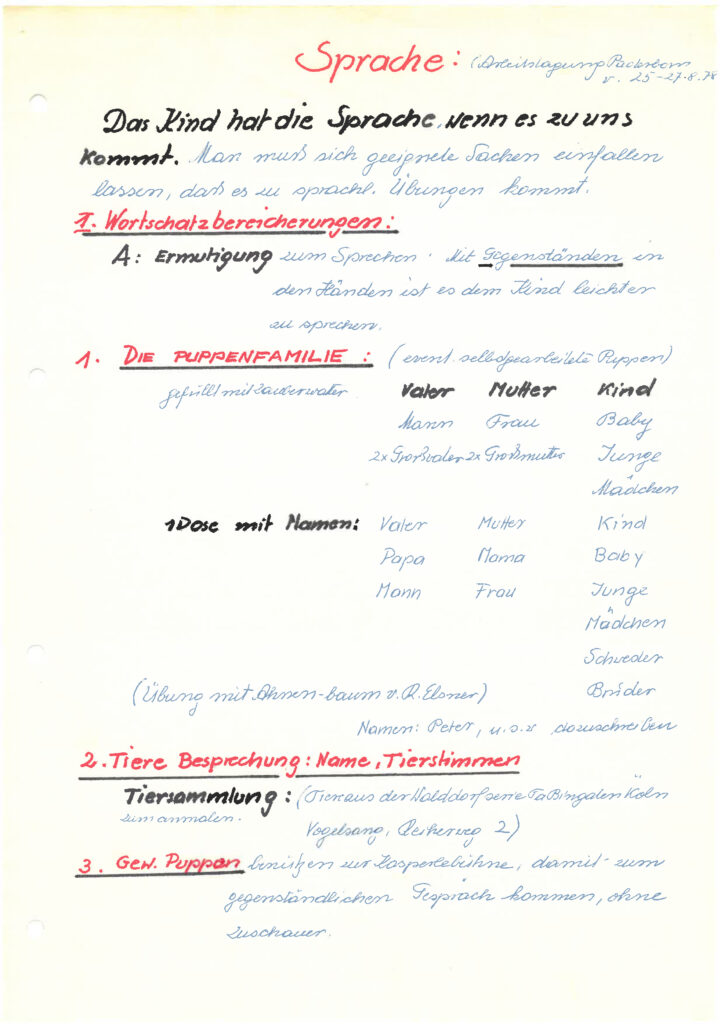 Sprache: (Arbeitstagung Paderborn
v. 25-27.8.78
Das Kind hat die Sprache, wenn es zu uns
kommt. Man muß sich geeignete Sachen einfallen
lassen, daß es zu sprachl. Übungen kommt.
I. Wortschatzbereicherungen:
A: Ermutigung zum Sprechen. Mit Gegenständen in
den Händen ist es dem Kind leichter
zu sprechen.
1. DIE PUPPENFAMILIE: (event. selbstgearbeitete Puppen)
gefüllt mit Zauberwatte Vater Mutter Kind
Mann Frau Baby
2x Großvater 2x Großmutter Junge
Mädchen
1 Dose mit Namen: Vater Mutter Kind
Papa Mama Baby
Mann Frau Junge
Mädchen
Schwester
(Übung mit Ahnen-baum v. R. Elsner) Brüder
Namen: Peter, u.s.w dazuschreiben
2. Tiere Besprechung: Name, Tierstimmen
Tiersammlung: (Tier aus der Walddorfserie Köln
zum anmalen.
Vogelsang, 2)
3. Gew. Puppen benützen zur Kasperlebühne, damit zum
gegenständlichen Gespräch kommen, ohne
Zuschauer.